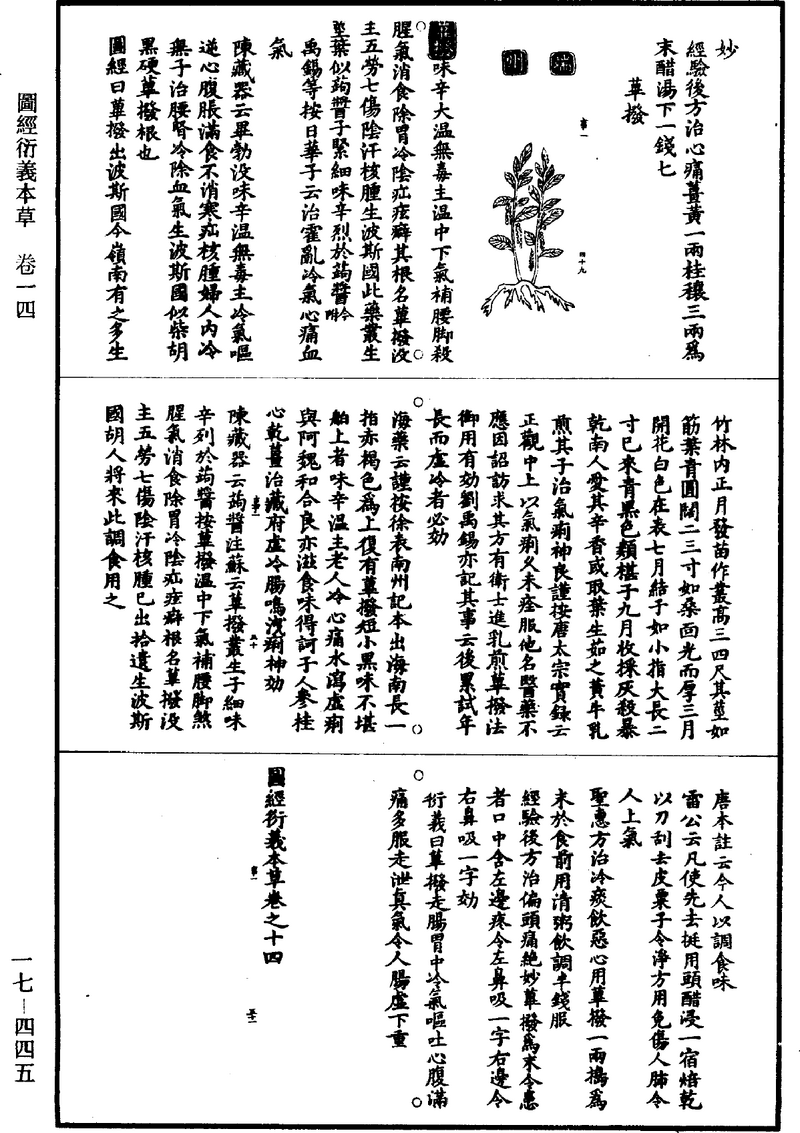 妙
經驗後方治心痛薑黃一兩桂穰三兩爲
末醋湯下一錢七
蓽撥
味辛大温無毒主温中下氣補腰脚殺
腥氣消食除胃冷陰疝痃癖其根名蓽撥没
主五勞七傷陰汗核腫生波斯國此藥叢生
莖葉似蒟醬子緊細味辛烈於蒟醬
禹錫等按日華子云治霍亂冷氣心痛血
氣
陳藏器云畢勃没味辛温無毒主冷氣嘔
逆心腹脹滿食不消寒疝核腫婦人内冷
無子治腰腎冷除血氣生波斯國似柴胡
黑硬蓽撥根也
圖經曰蓽撥出波斯國今嶺南有之多生
竹林内正月發苗作叢高三四尺其莖如
筋葉青圓闊二三寸如桑面光而厚三月
開花白色在表七月結子如小指大長二
寸已來青黑色類椹子九月收採灰殺暴
乾南人愛其辛香或取葉生茹之黃牛乳
煎其子治氣痢神良謹按唐太宗實録云
正觀中上以氣痢久未痊服他名醫藥不
應因詔訪求其方有衛士進乳煎蓽撥法
御用有効劉禹錫亦記其事云後累試年
長而虛冷者必効
海藥云謹按徐表南州記本出海南長一
指赤褐色爲上復有蓽撥短小黑味不堪
舶上者味辛温主老人冷心痛水瀉虛痢
與阿魏和合良亦滋食味得訶子人參桂
心乾薑治藏府虛冷腸鳴洩痢神効
陳藏器云蒟醬注蘇云蓽撥叢生子細味
辛列於蒟醬按蓽撥温中下氣補腰脚煞
腥氣消食除胃冷陰疝痃癖根名蓽撥没
主五勞七傷陰汗核腫已出拾遺生波斯
國胡人將來此調食用之
唐本註云今人以調食味
雷公云凡使先去挺用頭醋浸一宿焙乾
以刀刮去皮粟子令淨方用免傷人肺令
人上氣
聖惠方治冷痰飲惡心用蓽撥一兩搗爲
末於食前用清粥飲調半錢服
經驗後方治偏頭痛絶妙蓽撥爲末令患
者口中含左邊疼令左鼻吸一字右邊令
右鼻吸一字効
衍義曰蓽撥走腸胃中冷氣嘔吐心腹滿
痛多服走泄真氣令人腸虛下重
圖經衍義本草卷之十四
圖經衍義本草　卷一四
一七—四四五